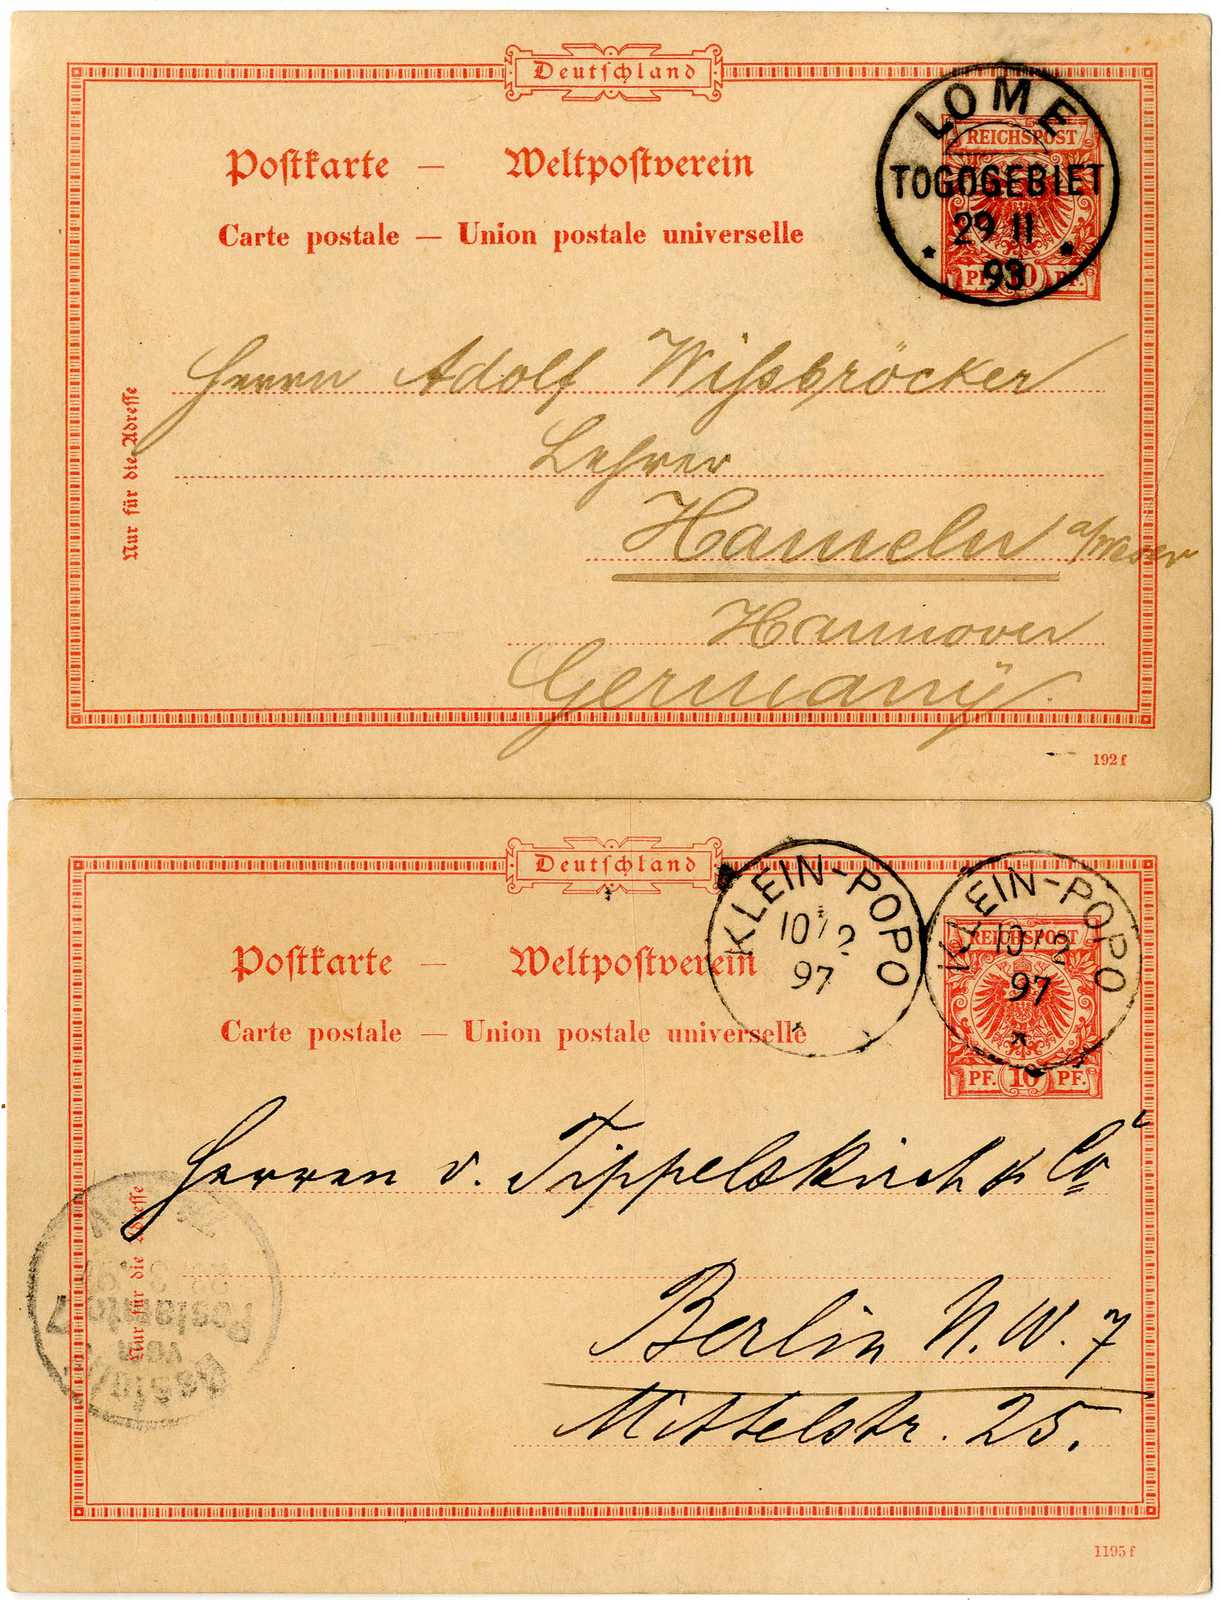 Deutschland
Postkarte — Weltpostverein
Carte postale — Union postale universelle
LOME
TOGOGEBIET
29 11
93
REICHSPOST
PF. 10 PF.
Nur für die Adresse
Herrn Adolf Wissbröcker
Lehrer
Hameln a/Weser
Hannover
Germany
192 f
Deutschland
Postkarte — Weltpostverein
Carte postale — Union postale universelle
KLEIN-POPO
10/2
97
KLEIN-POPO
10/2
97
REICHSPOST
PF. 10 PF.
Nur für die Adresse
Herren v. Tippelskirch & Co
Berlin N.W. 7
Mittelstr. 25.
Bestellt
vom
Postamte 7
1195 f